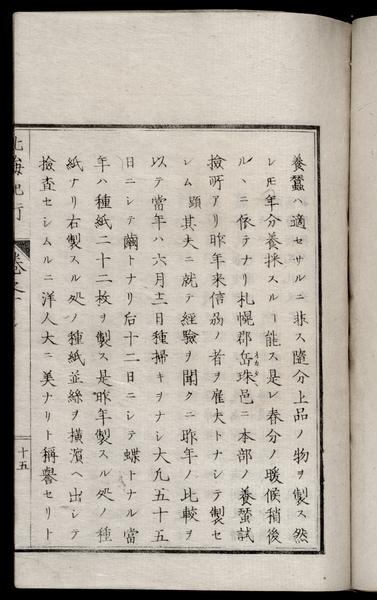 養蠶ハ適セサルニ非ス隨分上品ノ物ヲ製ス然
レ𪜈年分養採スルヿ能ス是レ春分ノ暖候稍後
ルヽニ依テナリ札幌郡岳珠邑ニ本部ノ養蠶試
撿所アリ昨年来信弱ノ者ヲ雇夫トナシテ製セ
シム顕其夫ニ就テ經驗ヲ聞クニ昨年ノ比較ヲ
以テ當年ハ六月十二日種掃キヲナシ大凢五十五
日ニシテ繭トナリ后十二日ニシテ蝶トナル當
年ハ種紙二十二枚ヲ製ス是昨年製スル処ノ種
紙ナリ右製スル処ノ種紙並絲ヲ横濱ヘ出シテ
撿査セシムルニ洋人大ニ美ナリト稱譽セリト
北海紀行
卷之
十五